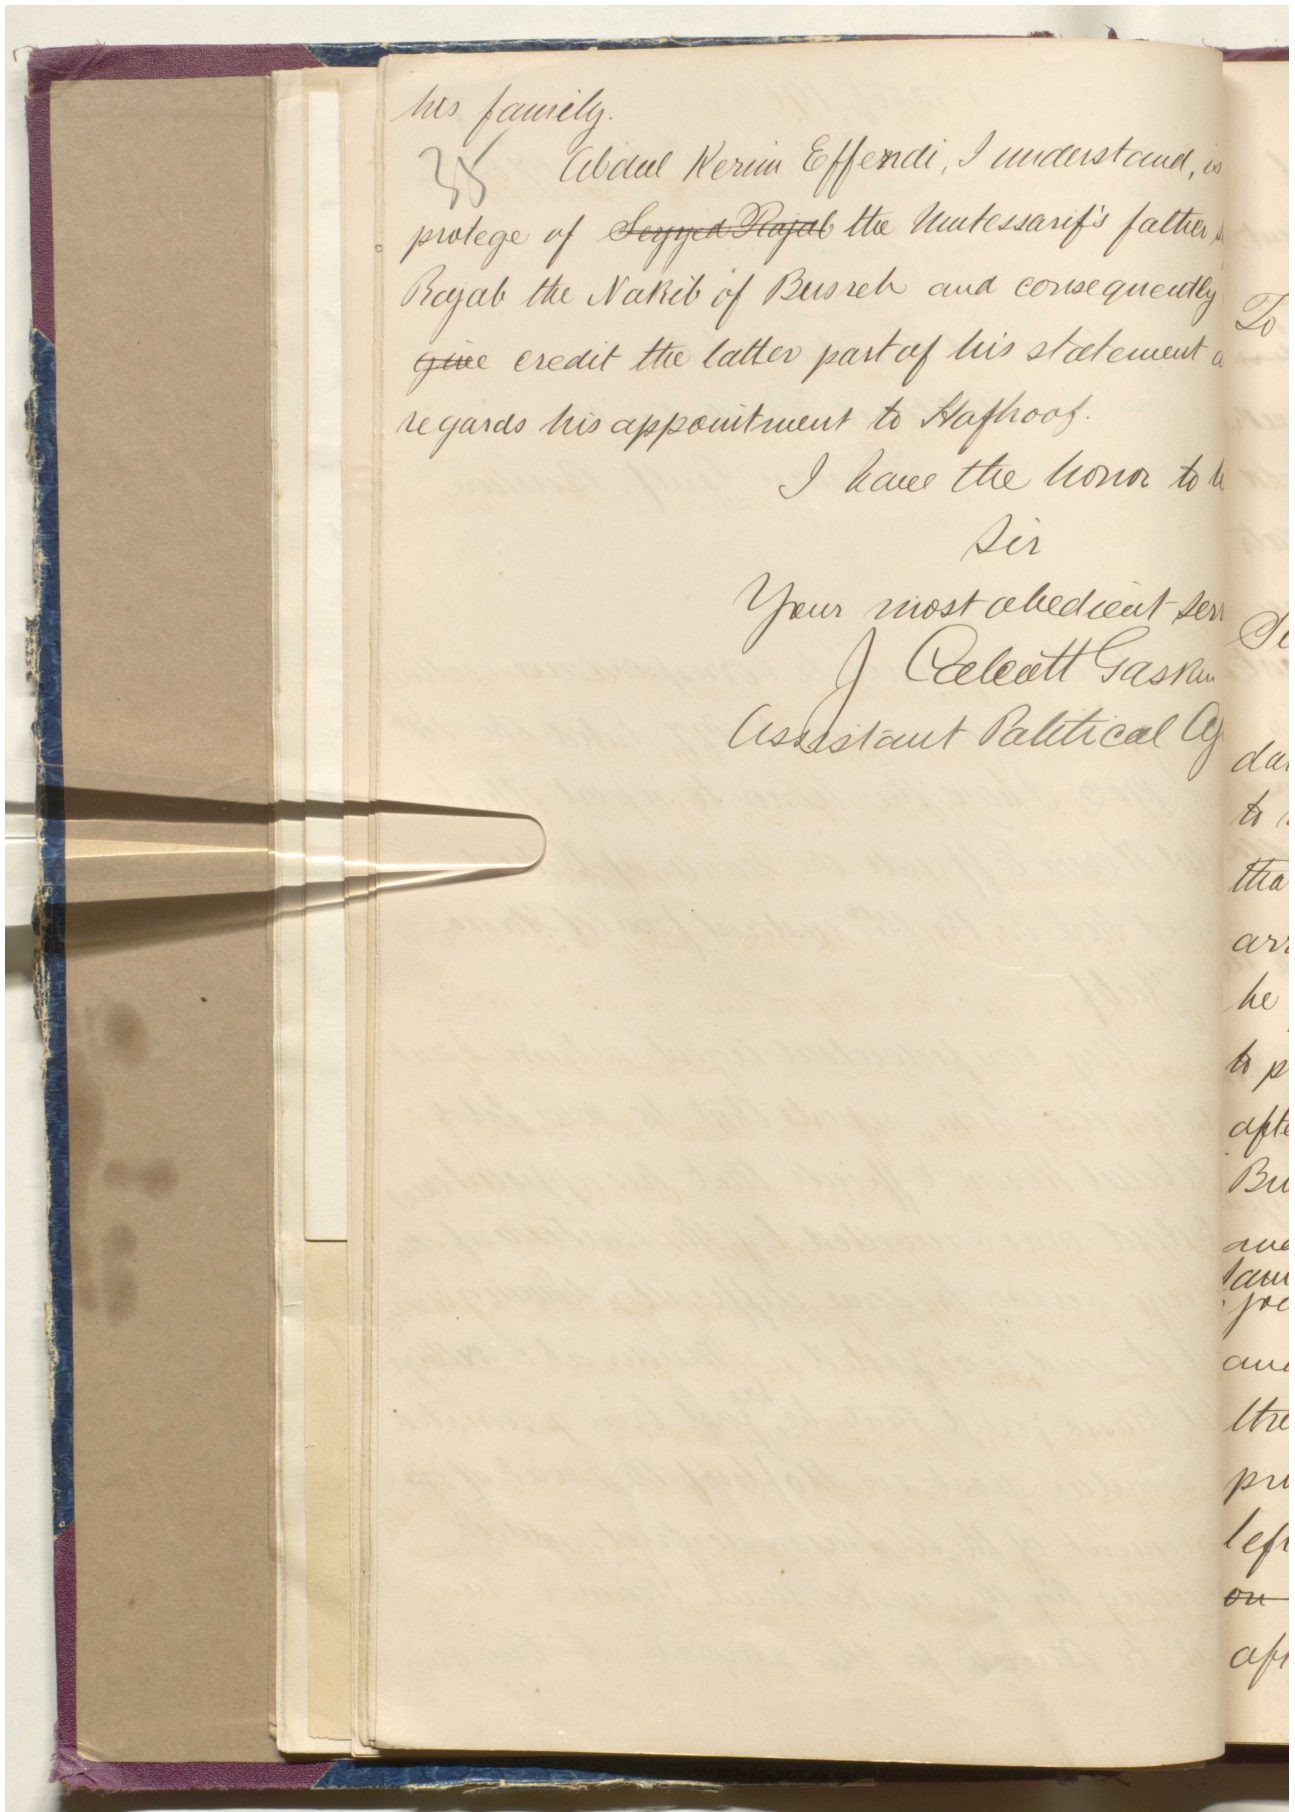 his family.
35
Abdul Kerim Effendi, I understand, is
protege of Seyyed Rajab the Mutessarif's father
Rajab the Nakib of Busreh and consequently
give credit the latter part of his statement a
regards his appointment to Hafhoof.
I have the honor to b
Sir
Your most obedient ser
J Calcott Gaskin
Assistant Political Ag
To
Si
dat
to
tha
arr
he
to p
afte
Bu
and
and
thre
pro
left
on
aft